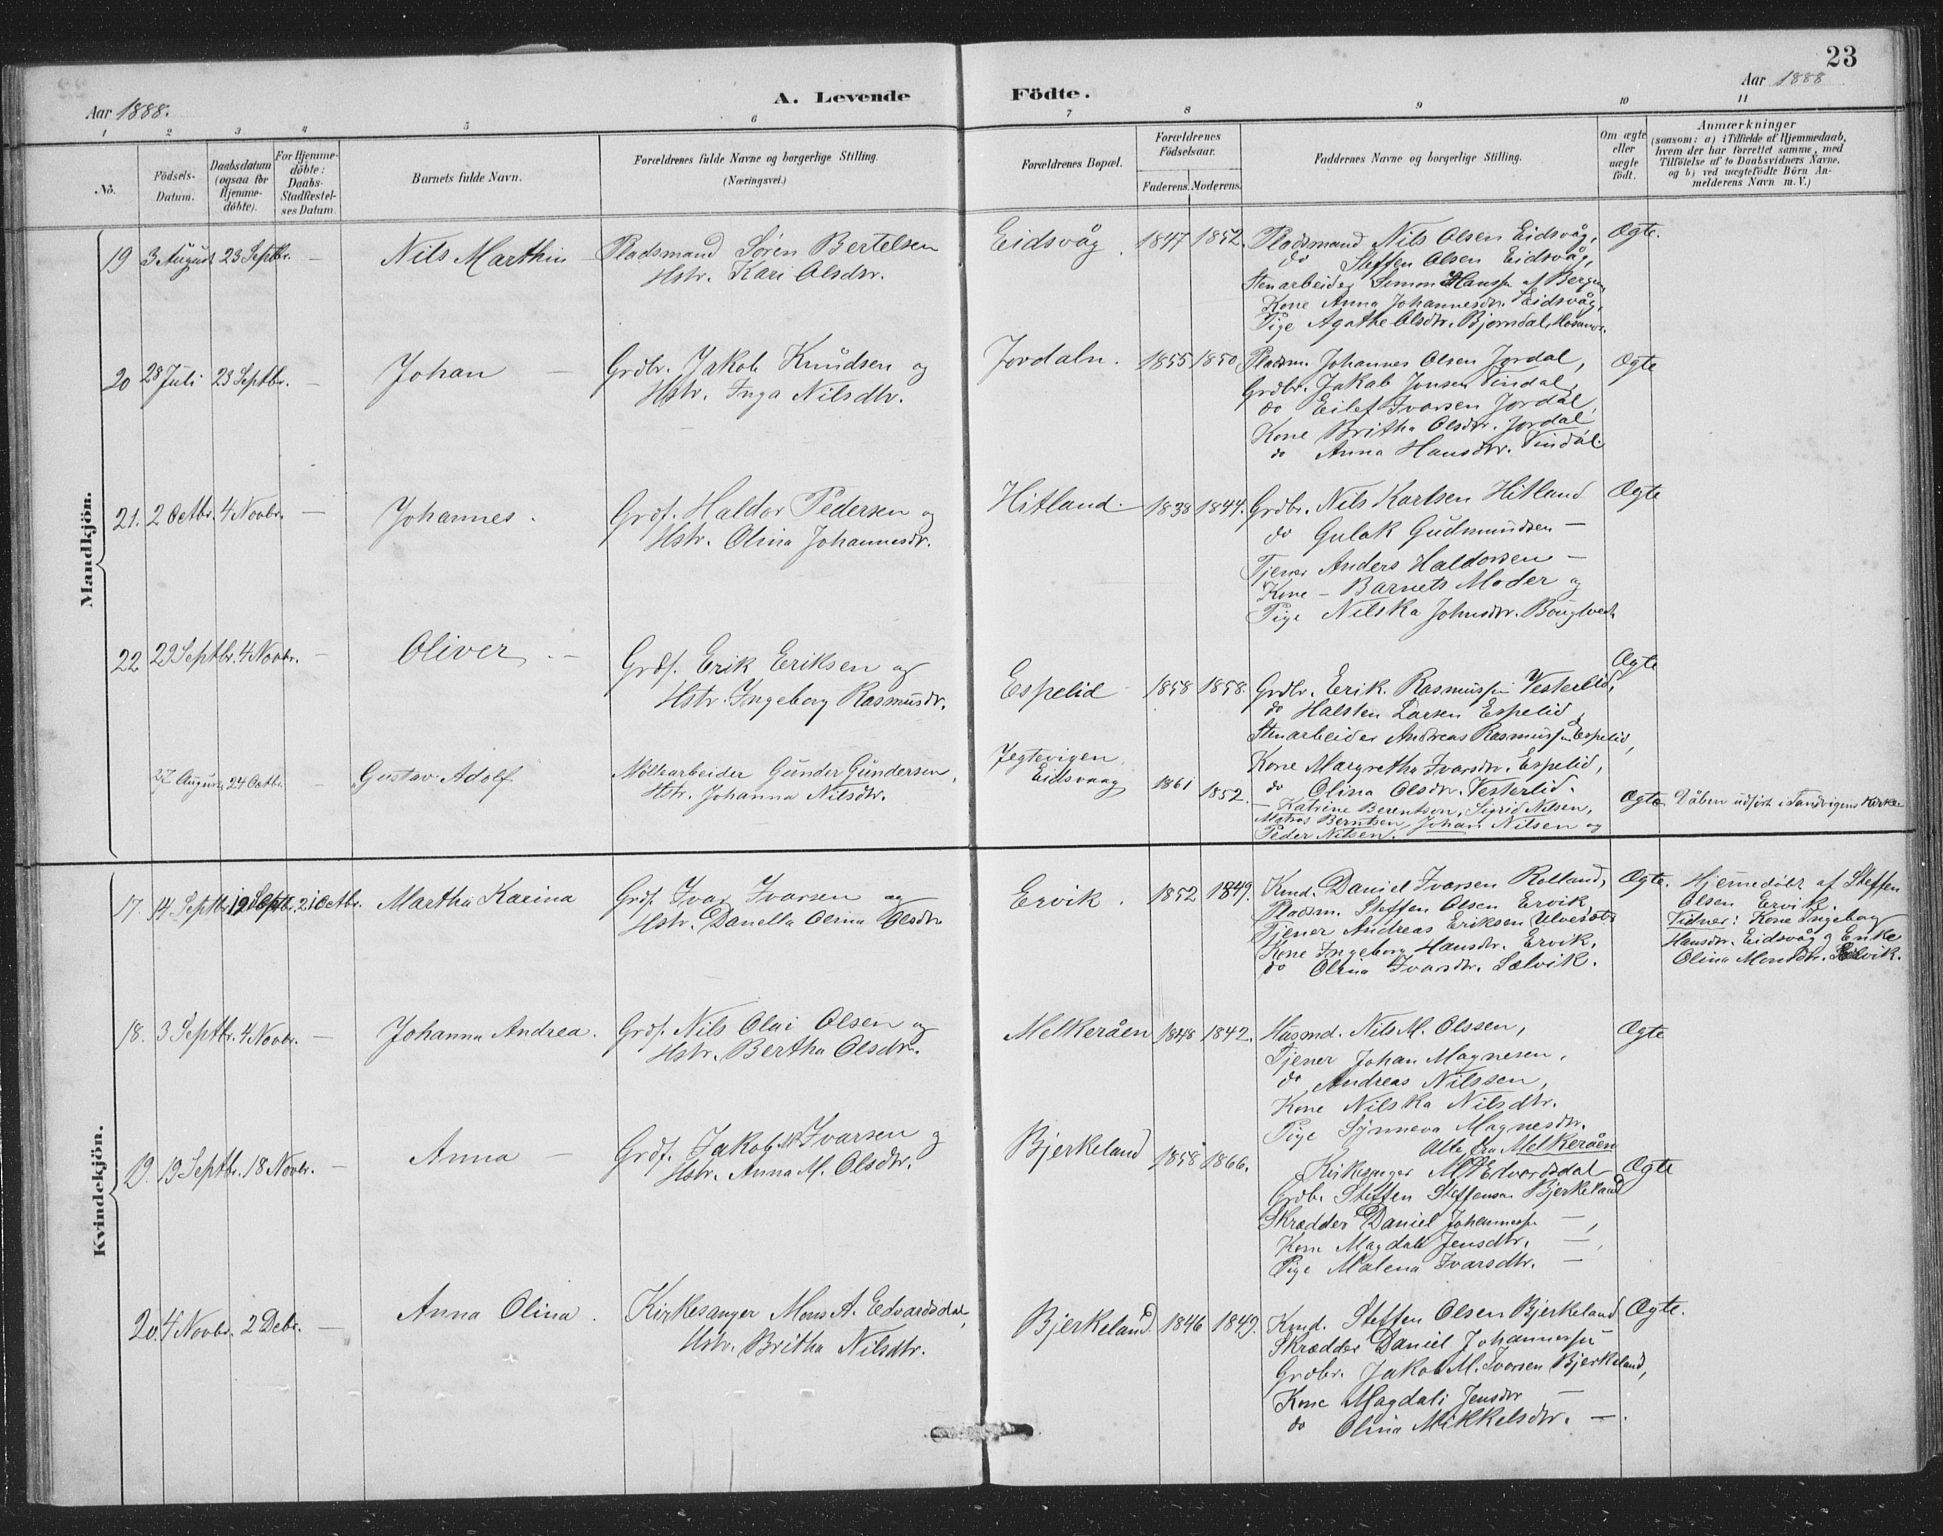 23
Aar 1888.
A. Levende
Födte.
Aar 1888
1 2 3 4 5 6 7 8 9 10 11
No.
Födsels-
Datum.
Daabsdatum
(ogsaa for
Hjemme-
döbte).
For Hjemme-
döbte:
Daabs-
Stadfæstel-
ses Datum.
Barnets fulde Navn.
Forældrenes fulde Navne og borgerlige Stilling.
(Næringsvei.)
Forældrenes Bopæl.
Forældrenes
Födselsaar.
Faderens. Moderens.
Faddernes Navne og borgerlige Stilling.
Om ægte
eller
uægte
födt.
Anmærkninger
(saasom: a) i Tilfælde af Hjemmedaab,
hvem der har forrettet samme, med
Tilföielse af to Daabsvidners Navne,
og b) ved uægtefödte Börn An-
melderens Navn m. V.)
Mandkjön.
19 3 August 23 Septbr. — Nils Marthin — Pladsmand Sören Bertelsen
Hstr. Kari Olsdtr.
Eidsvåg. 1847 1852. Pladsmand Nils Olsen Eidsvåg, Ægte.
do Steffen Olsen Eidsvåg,
Stenarbeider Simon Hanssn af Bergen
Kone Anna Johannesdtr. Eidsvåg,
Pige Agathe Olsdtr. Bjorndal,
20 28 Juli 23 Septbr. — Johan — Grdbr. Jakob Knudsen og
Hstr. Inga Nilsdtr.
Jordaln. 1855 1850. Pladsm. Johannes Olsen Jordal, Ægte
Grdbr. Jakob Jonsen Tindal,
do Eilef Ivarsen Jordal,
Kone Britha Olsdtr. Jordal
do Anna Hansdtr. Tindal.
21. 2 Octbr. 4 Novbr. — Johannes. Grdf. Haldor Pedersen og
Hstr. Olina Johannesdr.
Hitland. 1838 1844. Grdbr. Nils Karlsen Hitland Ægte
do Gulak Gudmundsen —
Tjener Anders Haldorsen —
Kone — Barnets Moder og
Pige Nilska Johnsdtr.
22 29 Septbr. 4 Novbr. — Oliver. — Grdf. Erik Eriksen og
Hstr. Ingeborg Rasmusdr.
Espelid 1858 1858. Grdbr. Erik Rasmussn Vesterlid, Ægte
do Halsten Larsen Espelid,
Stenarbeider Andreas Rasmussn Espelid,
Kone Margretha Ivarsdtr. Espelid,
do Olina Olsdtr. Vesterlid.
27 August 24 Octbr. — Gustav Adolf Möllearbeider Gunder Gundersen,
Hstr. Johanna Nilsdtr.
Jegtevigen,
Eidsvaag 1861 1852. — Katrine Berentsen, Sigrid Nilsen, Ægte. Dåben udfört i Sandvigens Kirke
Berntsen, Johan Nilsen og
Peder Nilsen.
Kvindekjön.
17. 14 Septbr. 19 Septbr. 21 Octbr. Martha Karina Grdf. Ivar Ivarsen og
Hstr. Danella Oerina Olsdtr
Ervik. 1852 1849. Kmd. Daniel Ivarsen Rolland, Ægte.
Pladsm. Steffen Olsen Ervik,
Tjener Andreas Eriksen
Kone Ingeborg Hansdtr. Ervik,
do Olina Ivarsdtr. Sælvik.
Hjemmedöbt af Steffen
Olsen Ervik.
Vidner: Kone Ingeborg
Hansdtr. Eidsvåg og Enke
Olina Monsdtr. Selvik.
18. 3 Septbr. 4 Novbr. — Johanna Andrea. Grdf. Nils Olai Olsen og
Hstr. Bertha Olsdtr.
Melkeråen 1848 1842. Husmd. Nils M. Olssen, Ægte
Tjener Johan Magnesen,
do Andreas Nilssen,
Kone Nilska Nilsdtr.
Pige Synneva Magnesdtr.
Alle fra Melkeråen
19. 19 Septbr. 18 Novbr. — Anna — Grdf. Jakob M. Ivarsen og
Hstr. Anna M. Olsdtr.
Bjerkeland 1858 1866. Kirkesanger M. Edvardsdal Ægte
Grdb. Steffen Steffensen Bjerkeland
Skrædder Daniel Johannessn —,
Kone Magdali Jensdtr. —,
Pige Malena Ivarsdtr. —
20 4 Novbr. 2 Debr. — Anna Olina. Kirkesanger Mons A. Edvardsdal,
Hstr. Britha Nilsdtr.
Bjerkeland. 1846 1849. Kmd. Steffen Olsen Bjerkeland Ægte.
Skrædder Daniel Johannessn
Grdbr. Jakob M. Ivarsen Bjerkeland,
Kone Magdali Jensdtr —
do Olina Mikkelsdtr. —.